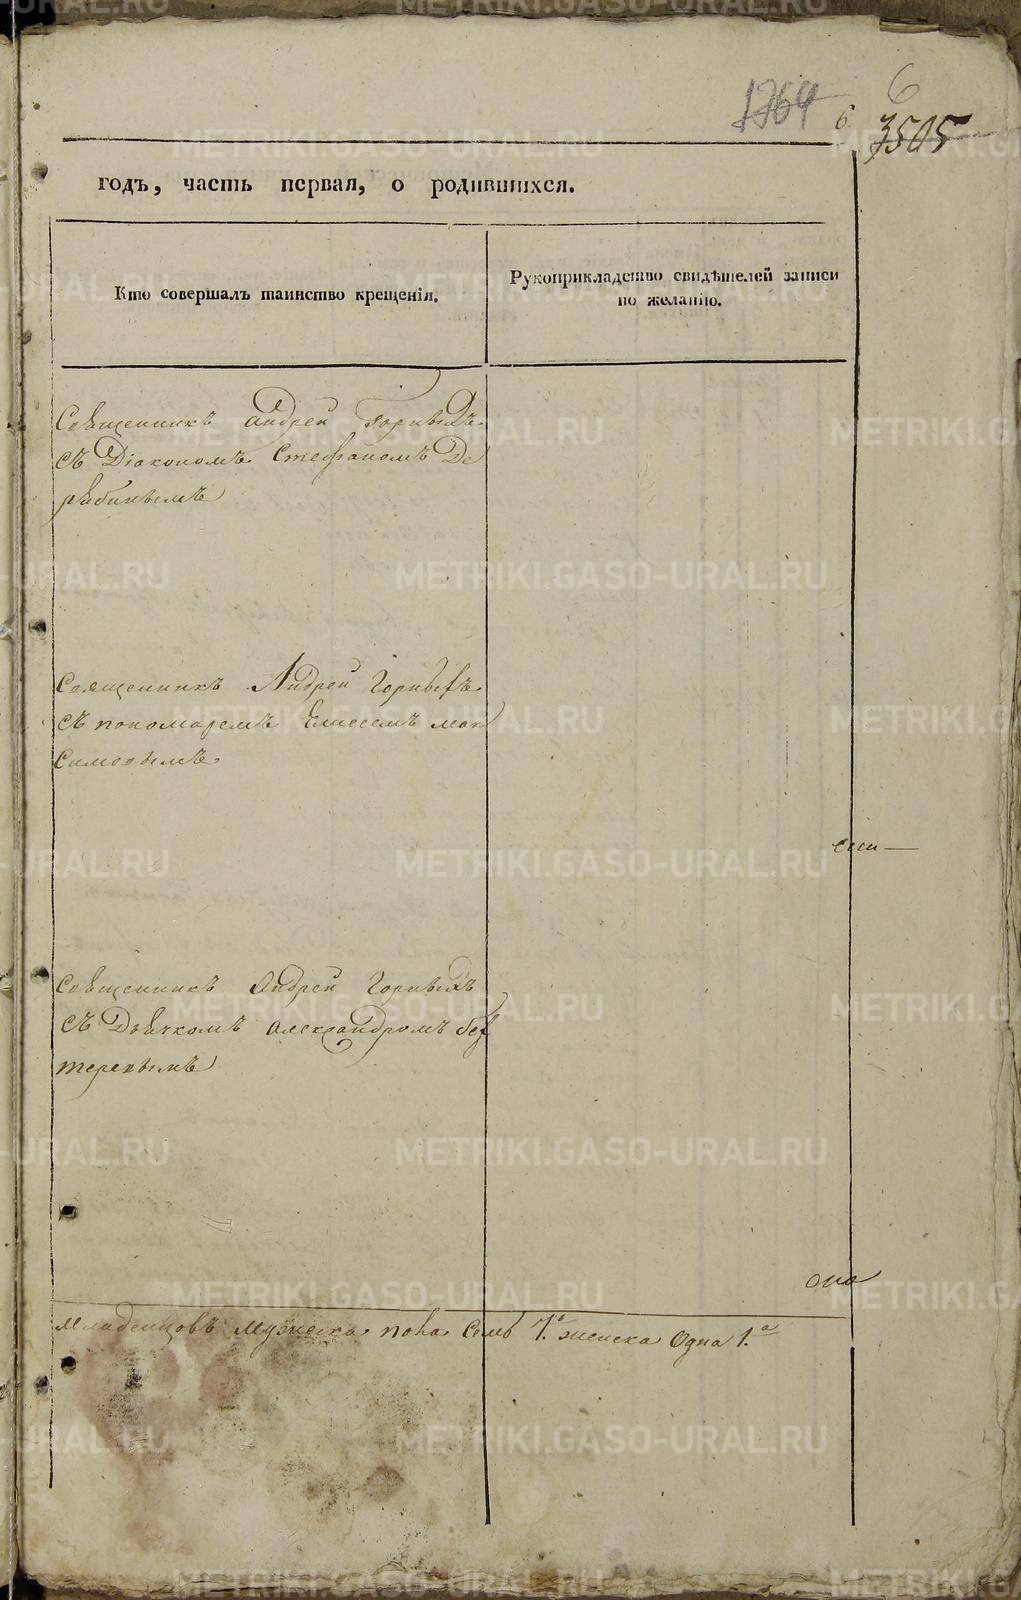 1764
6
6
3505
годъ, часть первая, о родившихся.
Кто совершалъ таинство крещенія.
Рукоприкладство свидѣтелей записи
по желанію.
Священникъ Андрей Горныхъ
съ Діакономъ Стефаномъ Де
рябинымъ
Священникъ Андрей Горныхъ
съ пономаремъ Елисеемъ мак
симовымъ
Священникъ Андрей Горныхъ
съ Дьячкомъ Александромъ бех
теревымъ
Младенцовъ мужеска пола семь 7. женска Одна 1.
METRIKI.GASO-URAL.RU